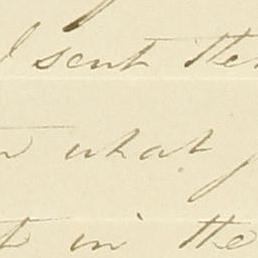 I sent the
what
in the